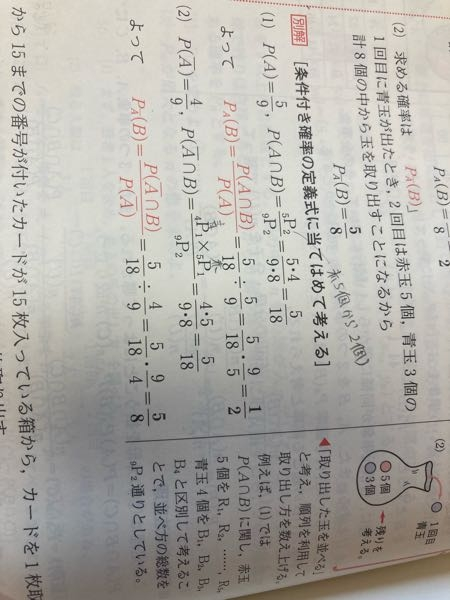 P_A(B)=—/8 2
(2) 求める確率は P_Ā(B)
1回目に青玉が出たとき，2回目は赤玉5個，青玉3個の
計8個の中から玉を取り出すことになるから
P_Ā(B)=5/8
別解 [条件付き確率の定義式に当てはめて考える]
赤5個から2個
(1) P(A)=5/9, P(A∩B)=₅P₂/₉P₂=5・4/9・8=5/18
よって P_A(B)=P(A∩B)/P(A)=5/18÷5/9=5/18・9/5=1/2
(2) P(Ā)=4/9, P(Ā∩B)=₄P₁×₅P₁/₉P₂=4・5/9・8=5/18
青 赤
よって P_Ā(B)=P(Ā∩B)/P(Ā)=5/18÷4/9=5/18・9/4=5/8
から15までの番号が付いたカードが15枚入っている箱から，カードを1枚取
(2)
1回目
青玉
5個
3個
残りを
考える。
◀「取り出した玉を並べる」
と考え，順列を利用して
取り出し方を数え上げる。
例えば，(1)では
P(A∩B)に関し，赤玉
5個をR₁，R₂，……，R₅，
青玉4個をB₁，B₂，B₃，
B₄と区別して考えるこ
とで，並べ方の総数を
₉P₂通りとしている。